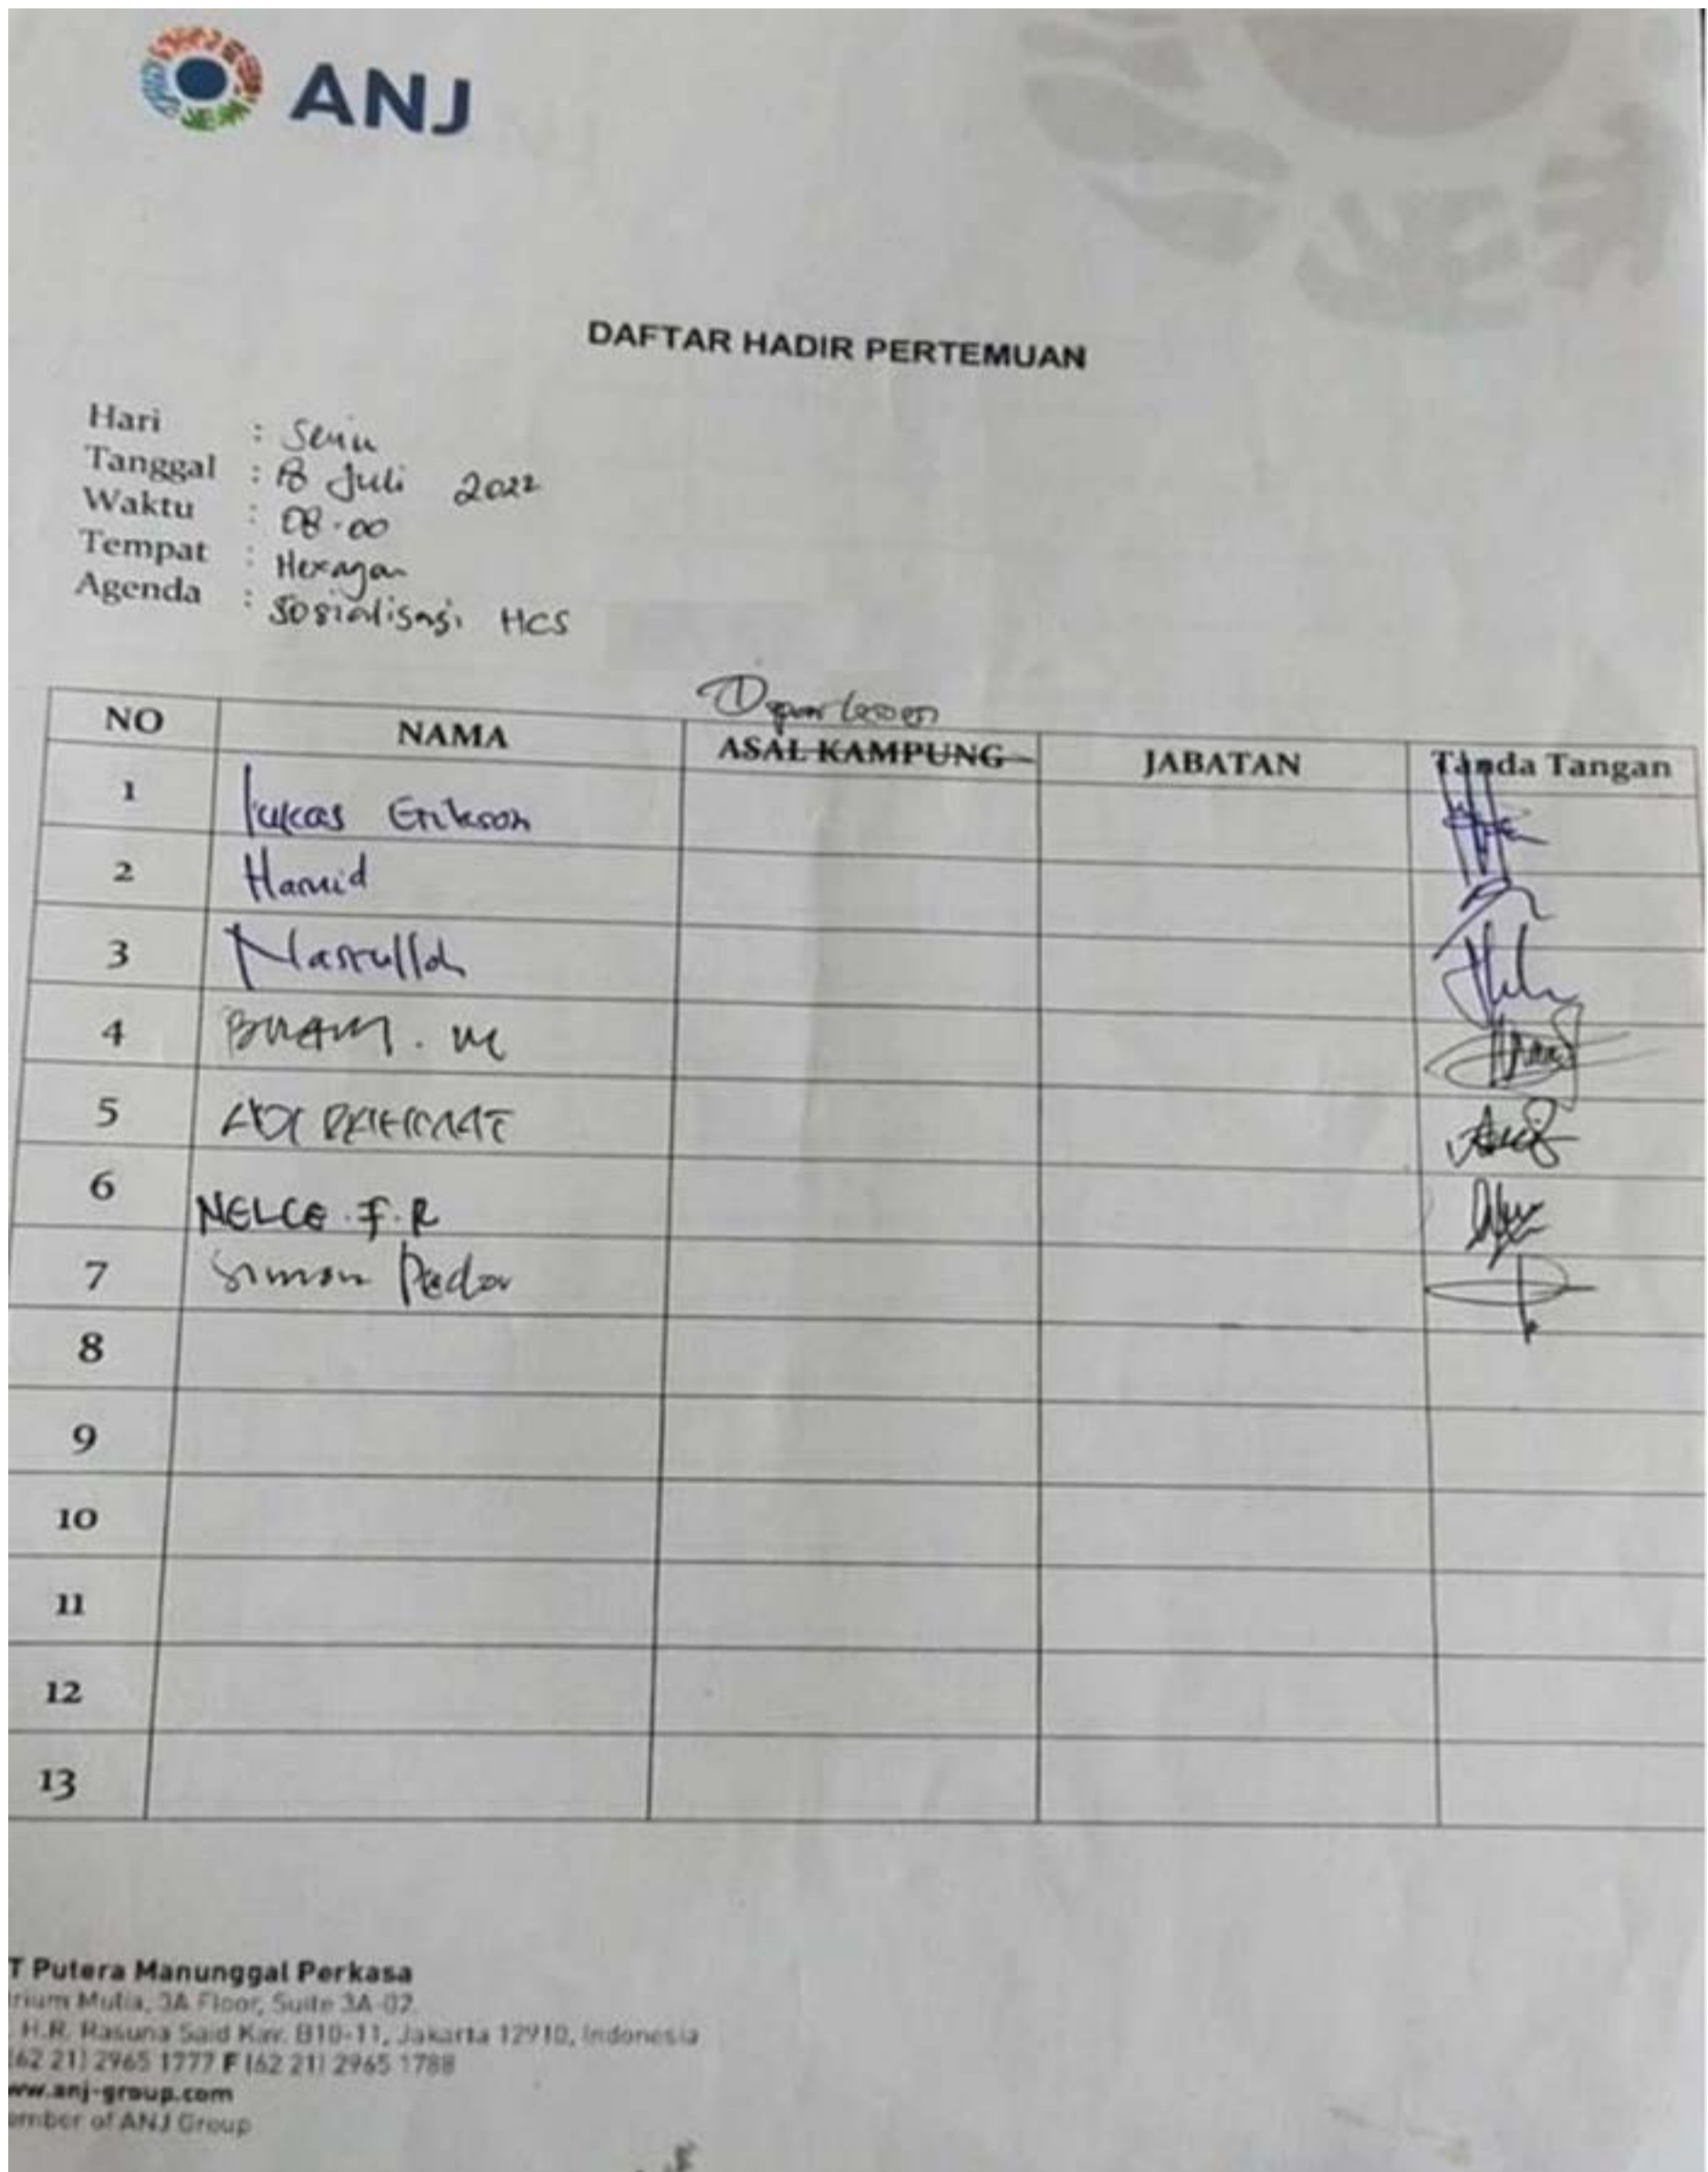 ANJ
DAFTAR HADIR PERTEMUAN
Hari : Senin
Tanggal : 18 Juli 2022
Waktu : 08.00
Tempat : Hexagon
Agenda : Sosialisasi HCS
Departemen
NO NAMA ASAL KAMPUNG JABATAN Tanda Tangan
1 Lukas Erikson
2 Hamid
3 Nasrullah
4 BRAM . M
5 ADI
6 NELCE . F . R
7 Simon Pedor
8
9
10
11
12
13
T Putera Manunggal Perkasa
trium Mulia, 3A Floor, Suite 3A-02
. H.R. Rasuna Said Kav. B10-11, Jakarta 12910, Indonesia
(62 21) 2965 1777 F (62 21) 2965 1788
ww.anj-group.com
ember of ANJ Group